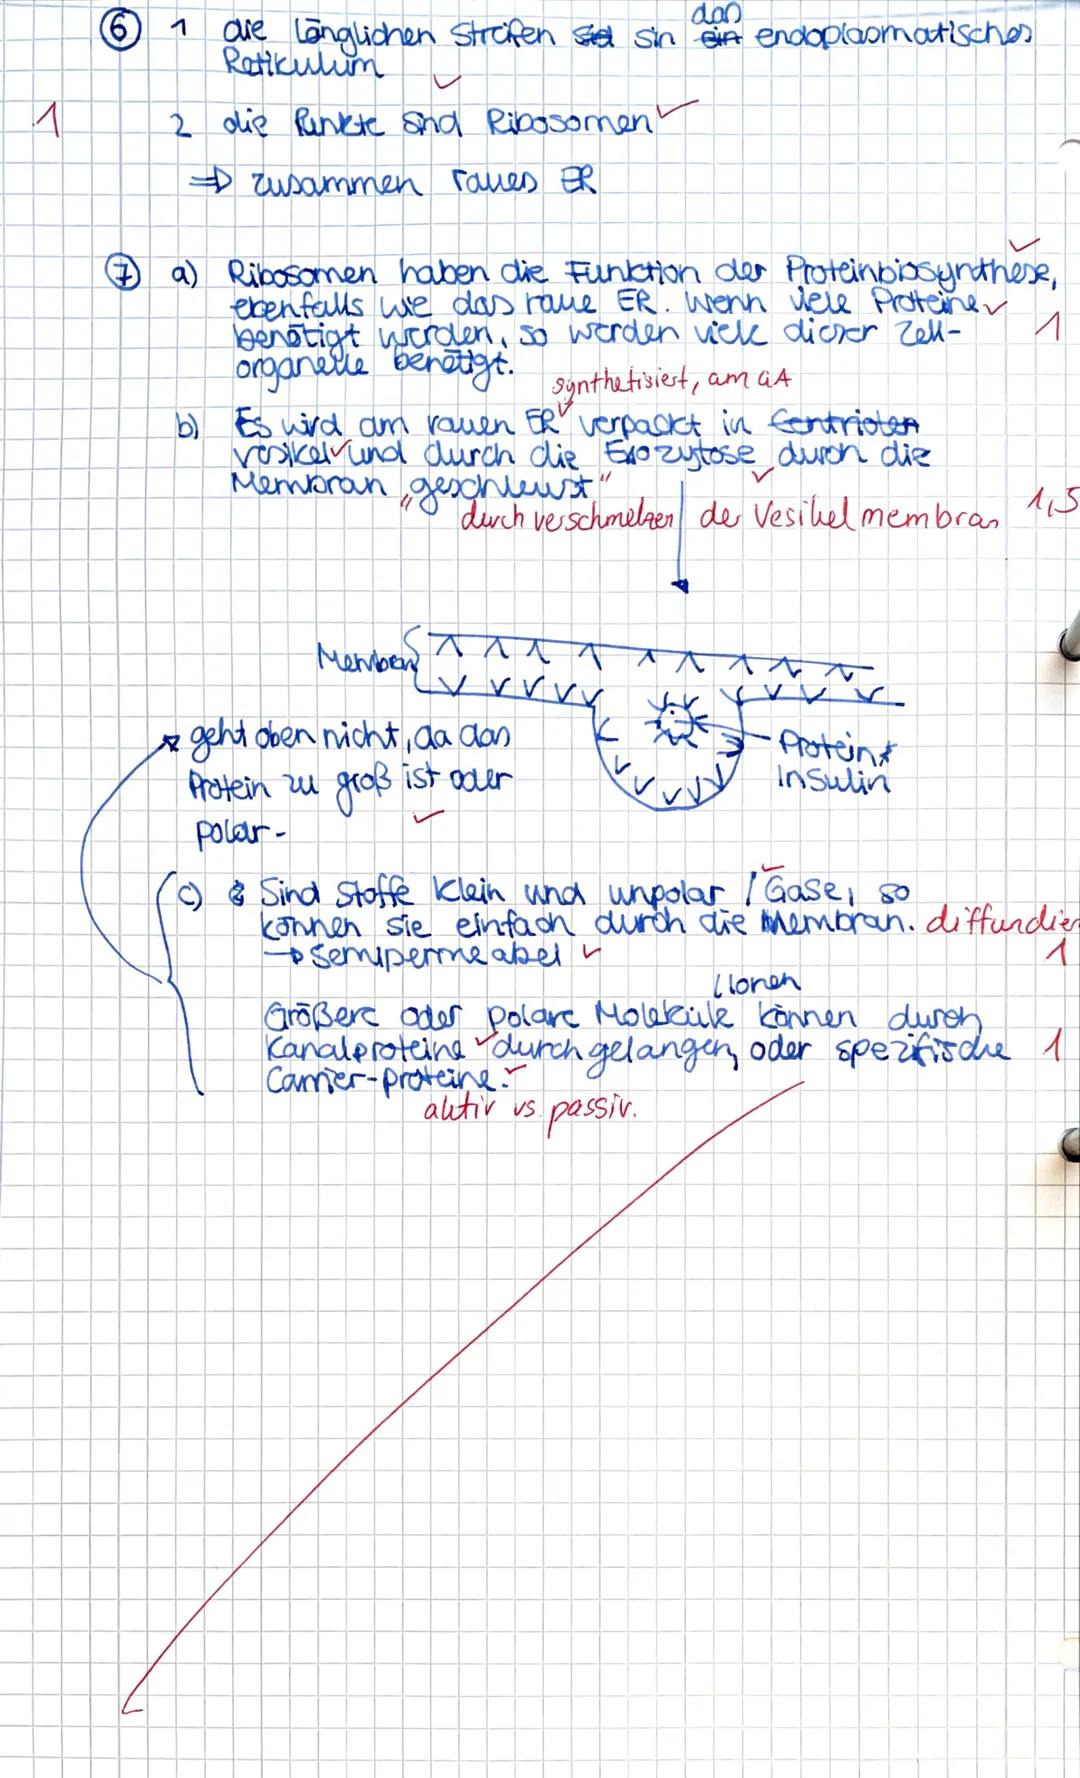 das
⑥ 1 die länglichen Streifen sin endoplasmatisches
Retikulum
1 2 die Punkte sind Ribosomen
⇒ zusammen raues ER
⑦ a) Ribosomen haben die Funktion der Proteinbiosynthese,
ebenfalls wie das raue ER. Wenn viele Proteine
benötigt werden, so werden viele dieser Zell- 1
organelle benötigt.
synthetisiert, am GA
b) Es wird am rauen ER verpackt in Centriolen
Vesikel und durch die Exozytose durch die
Membran „geschleust"
durch verschmelzen der Vesikelmembran 1,5
Membran
geht oben nicht, da das
Protein zu groß ist oder
polar-
Protein
Insulin
c) Sind Stoffe klein und unpolar / Gase, so
können sie einfach durch die Membran. diffundier
→ semipermeabel 1
/Ionen
Größere oder polare Moleküle können durch
Kanalproteine durchgelangen, oder spezifische 1
Carrier-proteine.
aktiv vs. passiv.